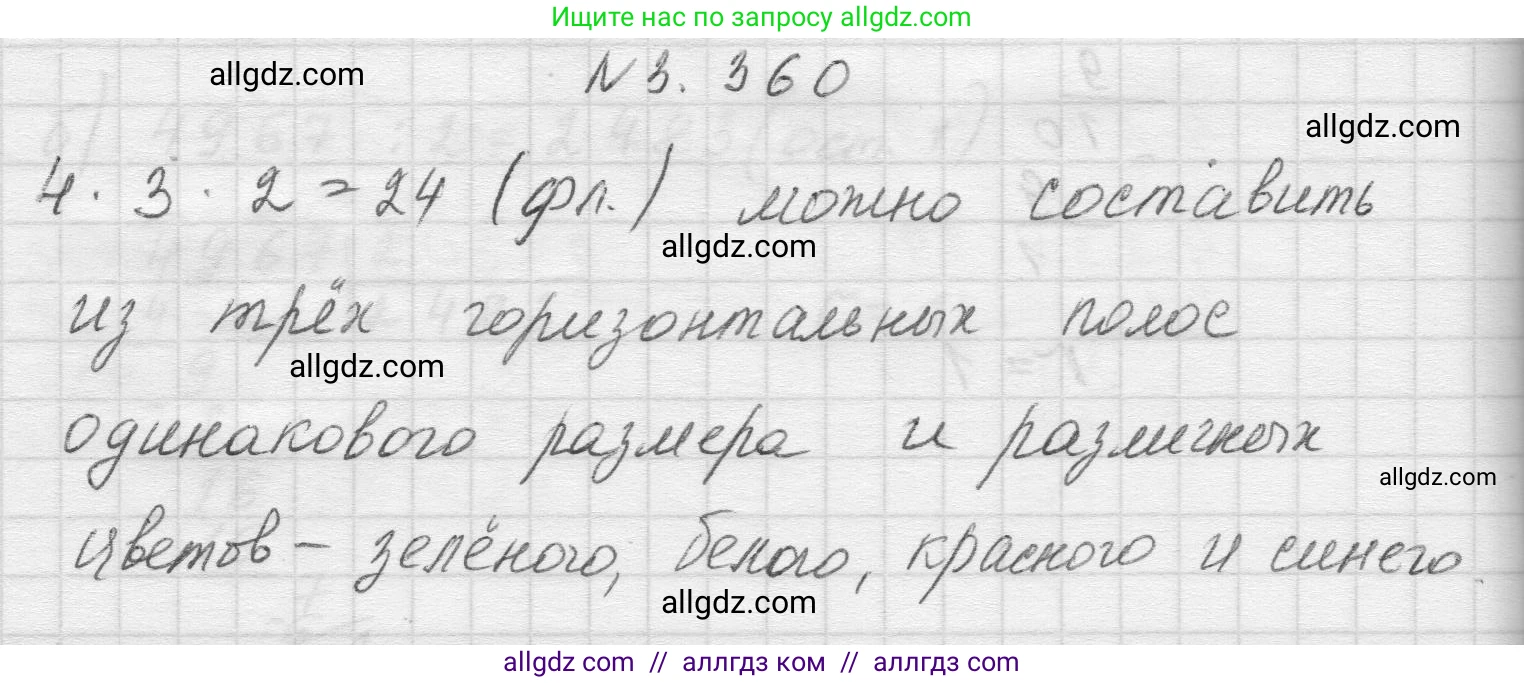 Ищите нас по запросу allgdz.com
allgdz.com
N 3. 360
allgdz.com
4 · 3 · 2 = 24 (фл.) можно составить
allgdz.com
из трёх горизонтальных полос
allgdz.com
одинакового размера и различных
allgdz.com
цветов – зелёного, белого, красного и синего.
allgdz.com
allgdz com // аллгдз ком // аллгдз com